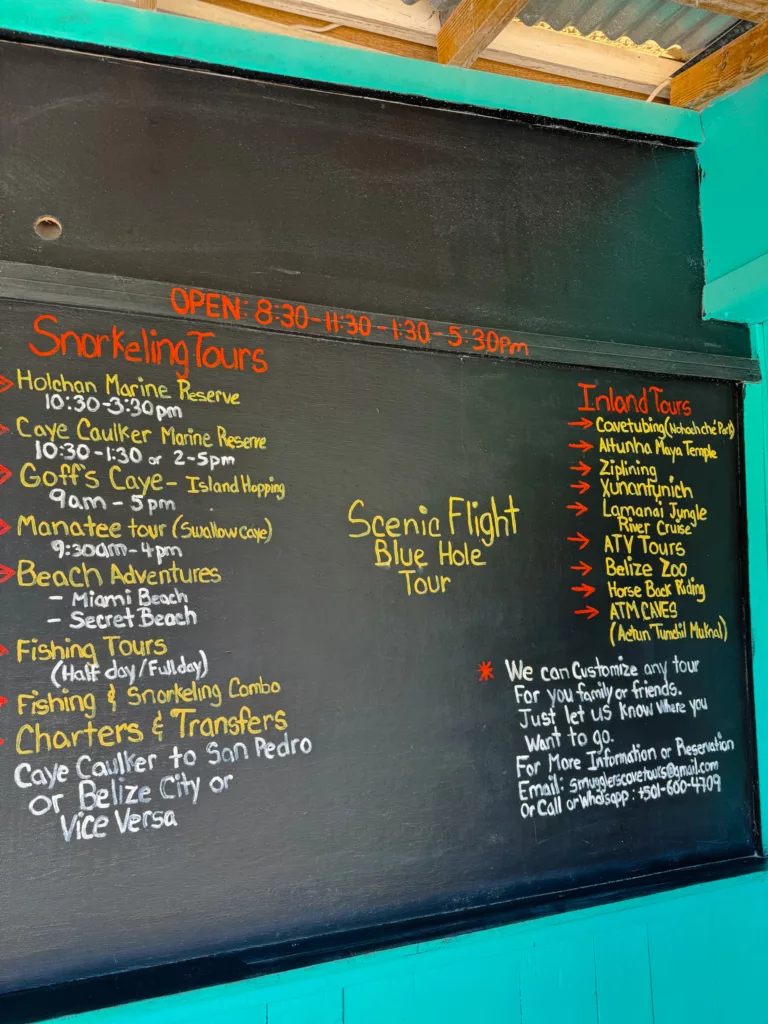 OPEN: 8:30-11:30-1:30-5:30pm
Snorkeling Tours
Holchan Marine Reserve
10:30-3:30pm
Caye Caulker Marine Reserve
10:30-1:30 or 2-5pm
Goff's Caye- Island Hopping
9am-5pm
Manatee tour (Swallow caye)
9:30am-4pm
Beach Adventures
- Miami Beach
- Secret Beach
Fishing Tours
(Half day/Full day)
Fishing & Snorkeling Combo
Charters & Transfers
Caye Caulker to San Pedro
or Belize City or
Vice Versa
Scenic Flight
Blue Hole
Tour
Inland Tours
→ Cavetubing (Nohoch ché Park)
→ Altunha Maya Temple
→ Ziplining
→ Xunantunich
→ Lamanai Jungle
River Cruise
→ ATV Tours
→ Belize Zoo
→ Horse Back Riding
→ ATM CAVES
(Actun Tunichil Muknal)
* We can Customize any tour
For you family or friends.
Just let us know where you
Want to go.
For More Information or Reservation
Email: smugglerscovetours@gmail.com
Or Call or Whatsapp: +501-600-4709